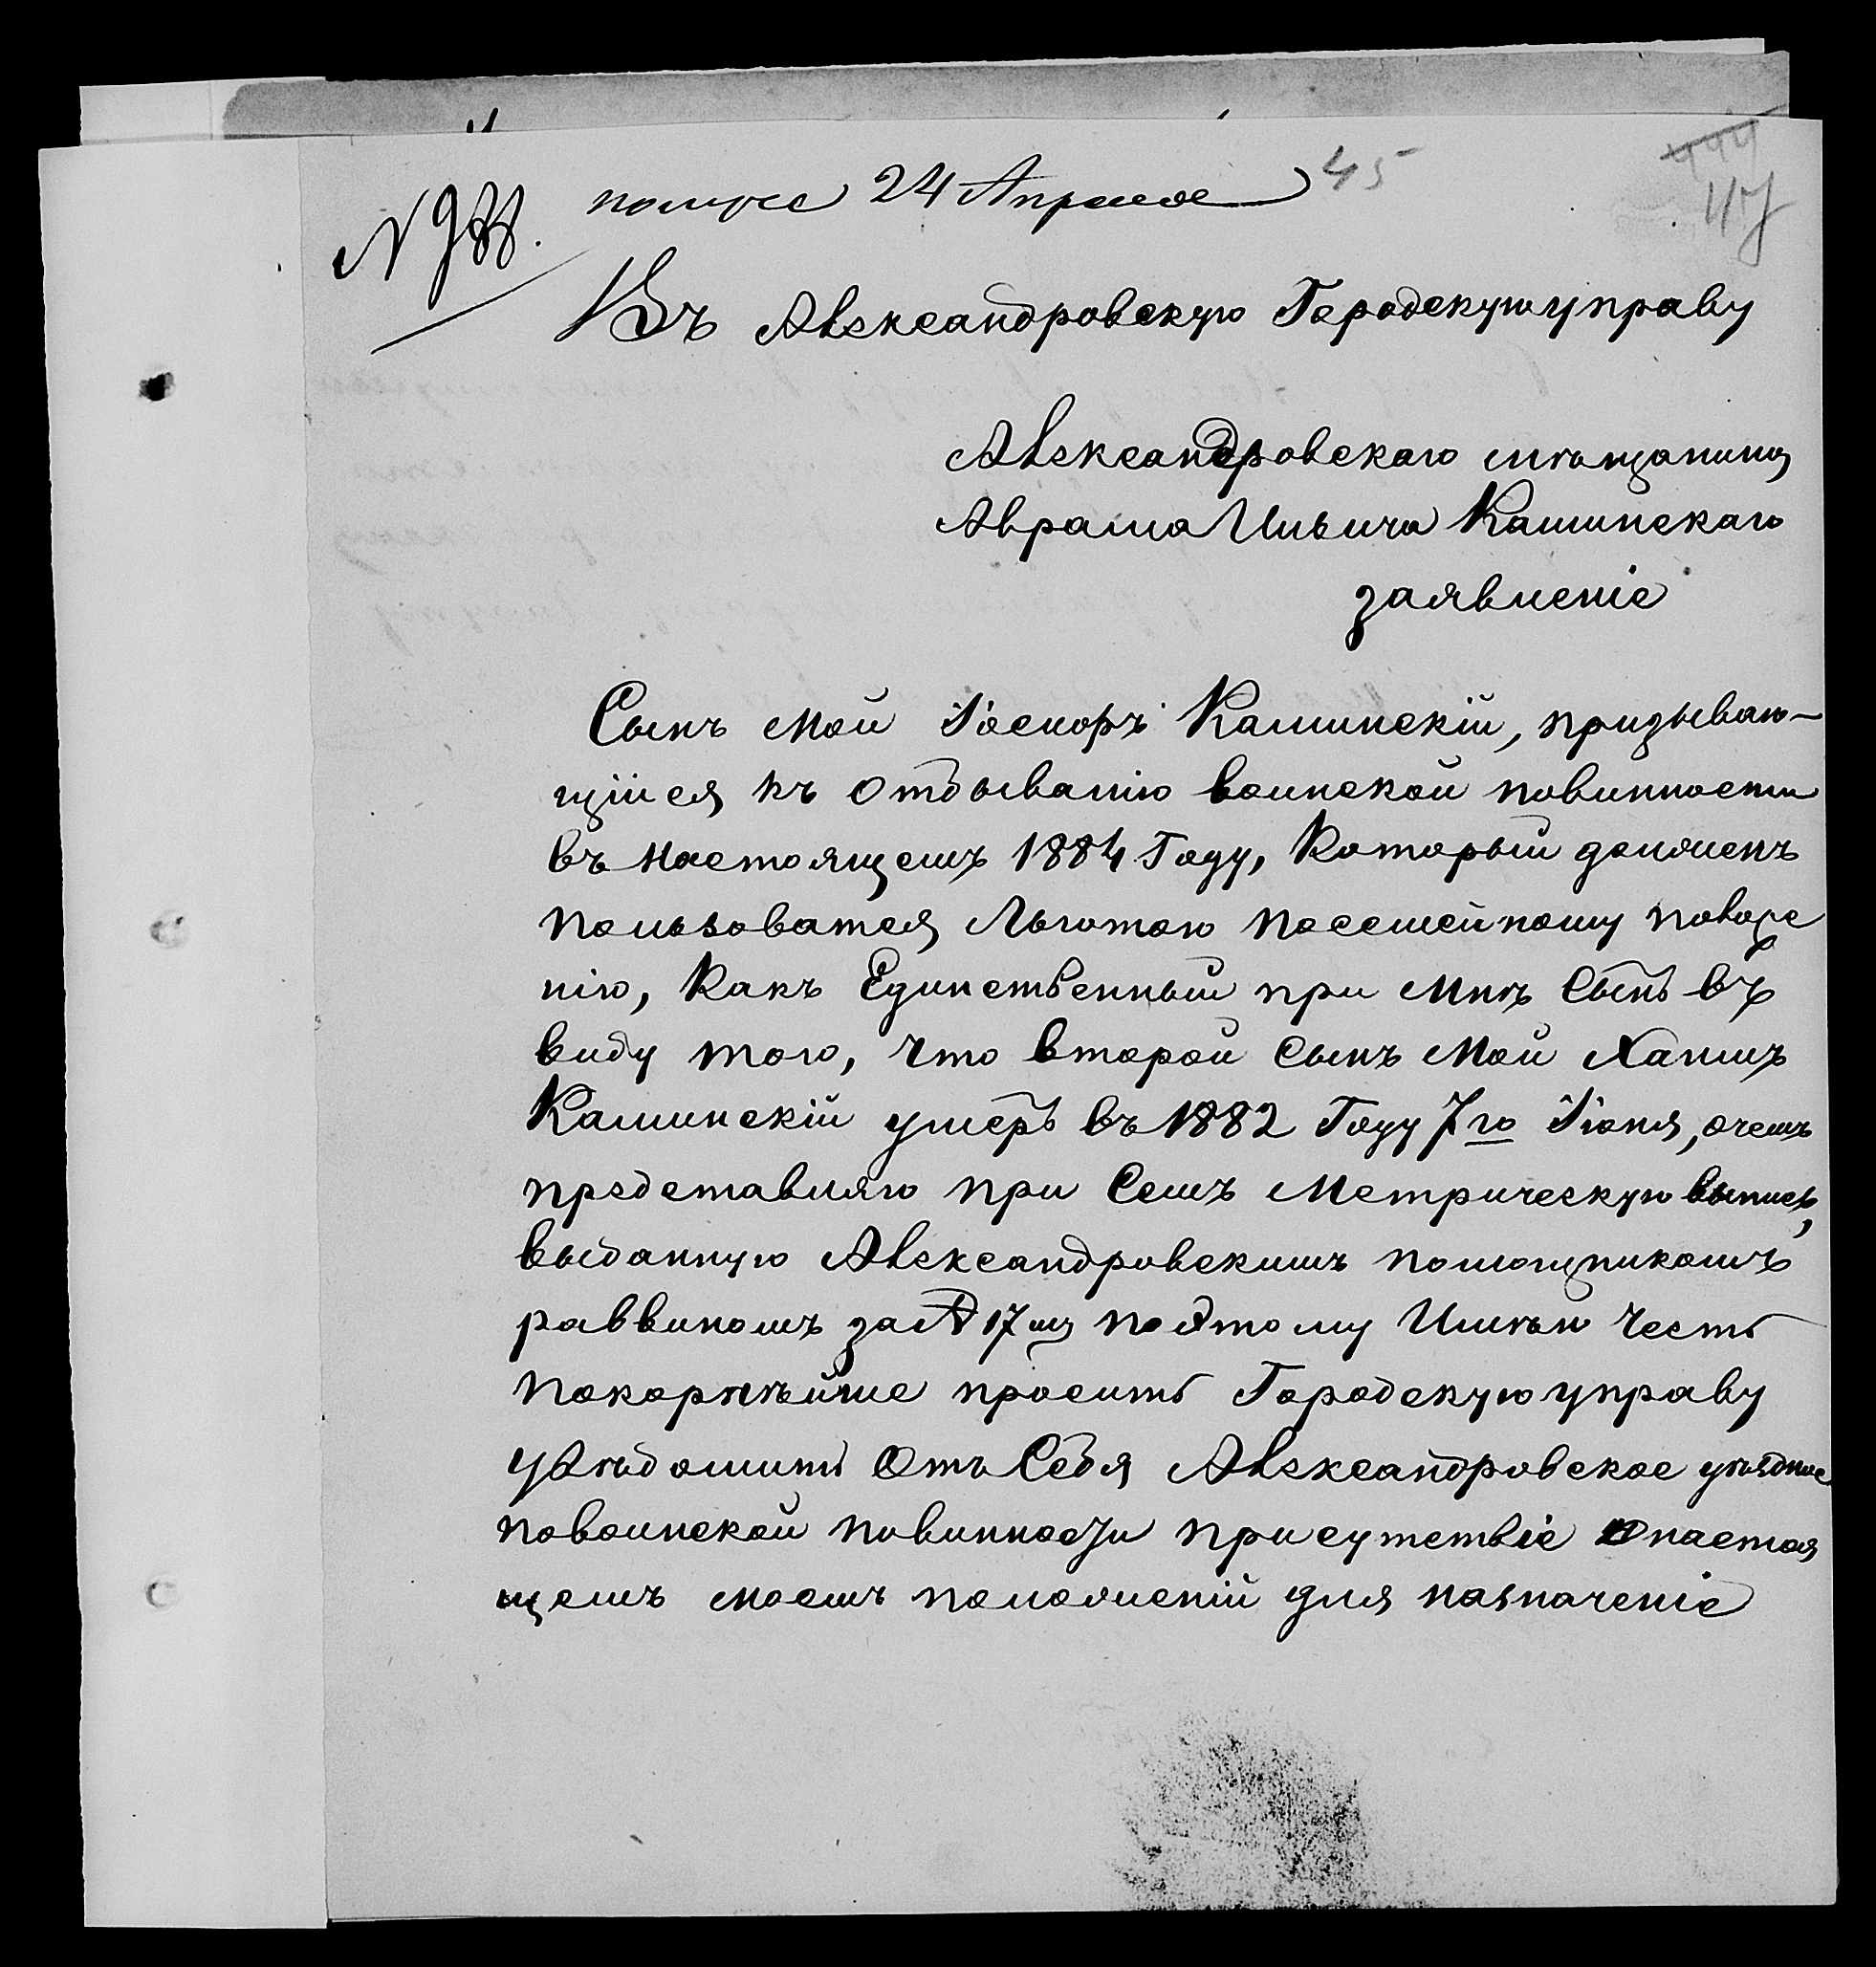 45
447
47
N 988.
получе 24 Апреля
Въ Александровскую Городскую управу
Александровскаго мѣщанина
Аврама Ильича Калинскаго
заявленіе
Сынъ мой Іосифъ Калинскій, призываю-
щійся къ отбыванію воинской повинности
въ настоящемъ 1884 Году, который долженъ
пользоватся льготою посемейному
нію, какъ Единственный при мнѣ сынъ въ
виду того, что второй сынъ мой
Калинскій умеръ въ 1882 Году 7го Іюня, очемъ
предетавляю при семъ Метрическую выпись,
выданную Александровскимъ помощникомъ
раввиномъ за № 17м поэтому Имѣю честь
покорнѣйше просить Городскую управу
увѣдомить Отъ Себя Александровское уѣздное
повоинской повинности присутствіе о настоя
щемъ моемъ положеній для назначеніе